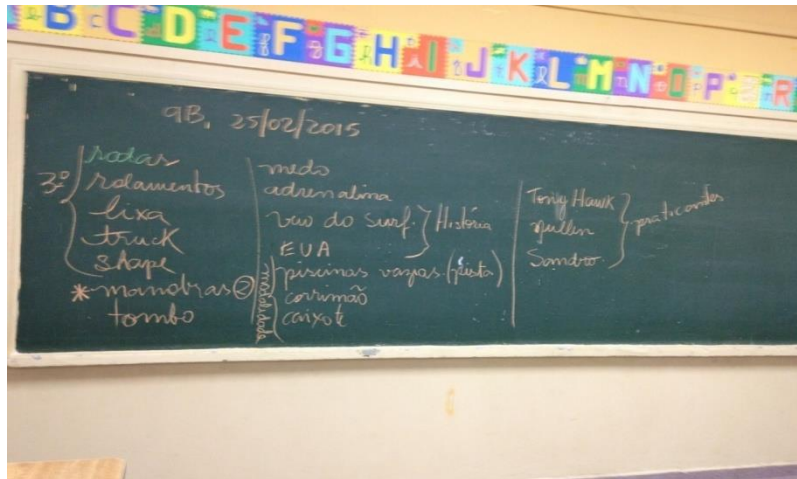 B C D E F G H I J K L M N O P R
9B, 25/02/2015
rodas
3º rolamentos
lixa
truck
shape
* manobras ②
tombo
medo
adrenalina
veio do surf. História
EUA
modalidade
piscinas vazias (pista)
corrimão
caixote
Tony Hawk praticantes
Mullen
Sandro